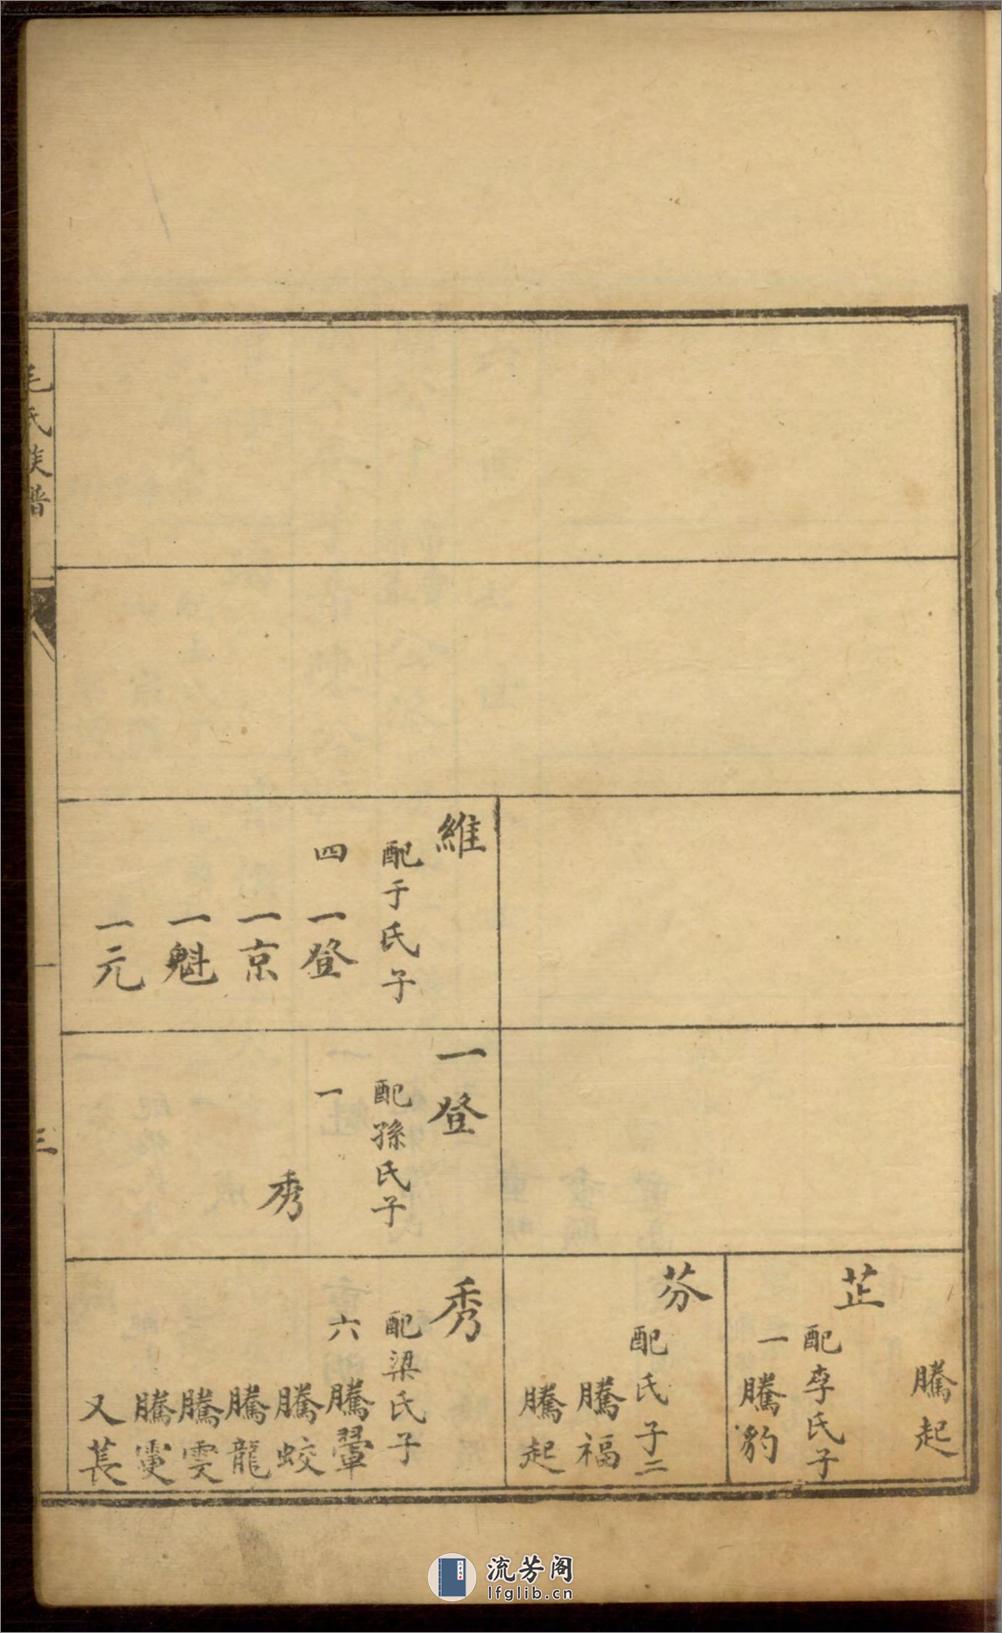 毛氏族譜
三
維
配于氏子
四
一登
一京
一魁
一元
一登
配孫氏子
一
秀
騰起
芷
配李氏子
一
騰豹
芬
配氏子二
騰福
騰起
秀
配梁氏子
六
騰翬
騰蛟
騰龍
騰雲
騰雯
又萇
流芳阁
lfglib.cn